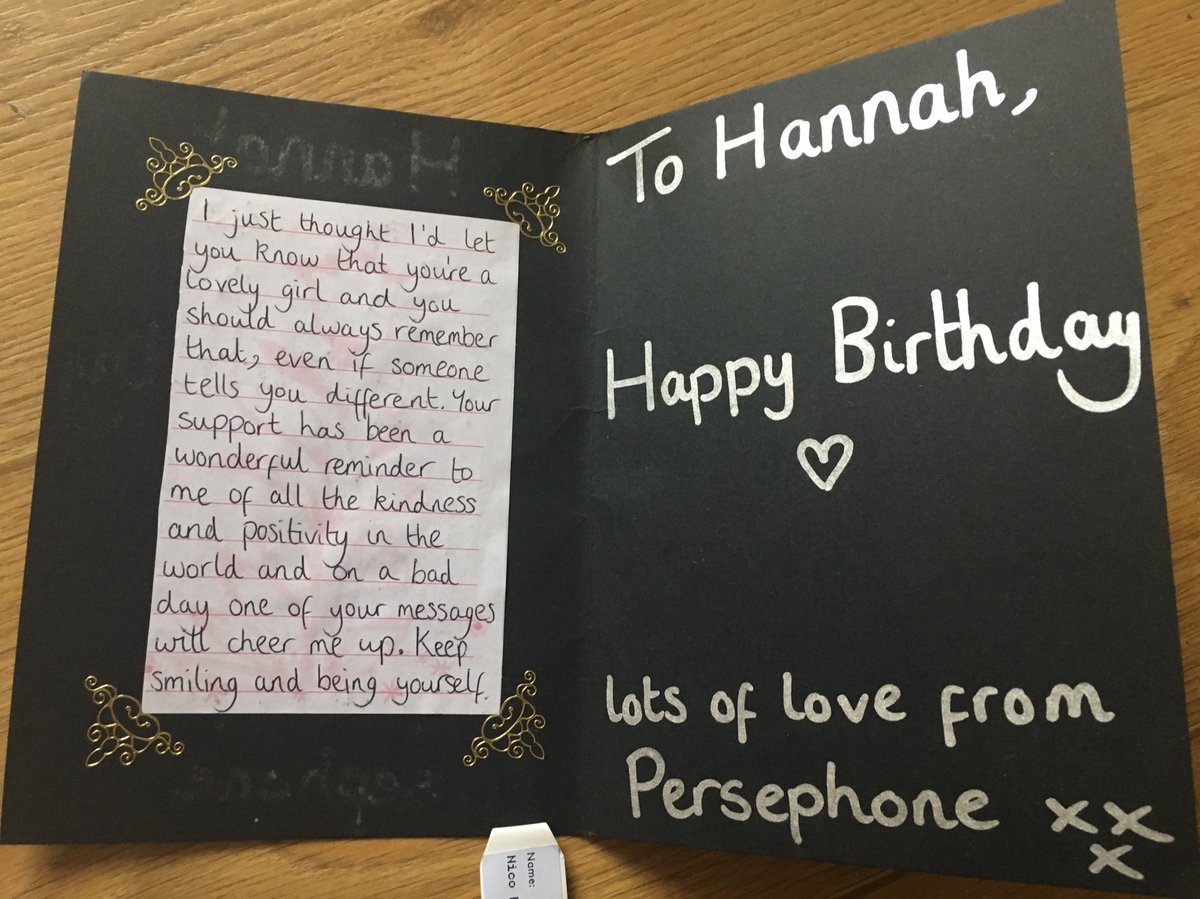 I just thought I'd let
you know that you're a
lovely girl and you
should always remember
that, even if someone
tells you different. Your
support has been a
wonderful reminder to
me of all the kindness
and positivity in the
world and on a bad
day one of your messages
will cheer me up. Keep
smiling and being yourself.
To Hannah,
Happy Birthday
lots of love from
Persephone xx
x
Name:
Nico